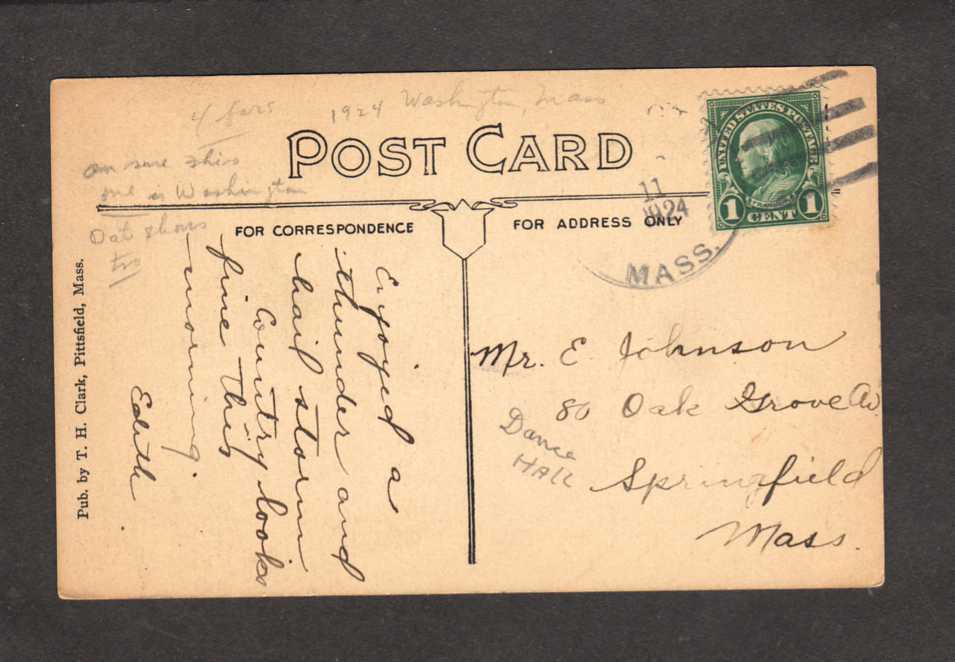 1924 Washington, Mass
4 fars
POST CARD
am sure this
one is Washington
FOR CORRESPONDENCE
FOR ADDRESS ONLY
UNITED STATES POSTAGE
1 CENT 1
11
1924
MASS.
Pub. by T. H. Clark, Pittsfield, Mass.
Enjoyed a
thunder and
hail storm
Country looks
fine this
morning.
Edith
Mr. E. Johnson
80 Oak Grove Av
Springfield
Mass.
Dance
HALL